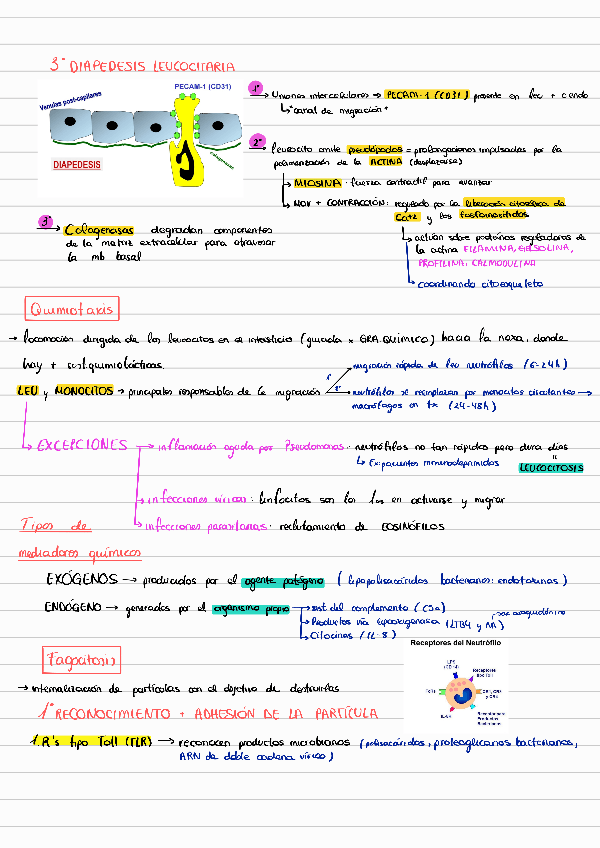 3° DIAPEDESIS LEUCOCITARIA
Vénulas post-capilares
PECAM-1 (CD31)
DIAPEDESIS
1° → Uniones intercelulares → PECAM-1 (CD31) presente en leu + endo
↳ "canal de migración"
2° → leucocito emite pseudópodos = prolongaciones impulsadas por la
polimerización de la ACTINA (desplazarse)
→ MIOSINA: fuerza contráctil para avanzar
→ MOV + CONTRACCIÓN: regulado por la liberación citosólica de
Ca+2 y los fosfoinosítidos
→ actúan sobre proteínas reguladoras de
la actina FILAMINA, GELSOLINA,
PROFILINA, CALMODULINA
→ coordinando citoesqueleto
3° → Colagenasas degradan componentes
de la matriz extracelular para atravesar
la mb basal
Quimiotaxis
→ locomoción dirigida de los leucocitos en el intersticio (guiada x GRA. QUÍMICO) hacia la noxa, donde
hay + sust. quimiotácticas.
LEU y MONOCITOS → principales responsables de la migración
1° migración rápida de leu neutrófilos (6-24h)
2° neutrófilos se reemplazan por monocitos circulantes →
macrófagos en tx (24-48h)
↳ EXCEPCIONES → inflamación aguda por Pseudomonas: neutrófilos no tan rápidos pero dura días
↳ Ex: pacientes inmunodeprimidos
LEUCOCITOSIS
→ infecciones víricas: linfocitos son los 1os en activarse y migrar
→ infecciones parasitarias: reclutamiento de EOSINÓFILOS
Tipos de
mediadores químicos
EXÓGENOS → producidos por el agente patógeno (lipopolisacáridos bacterianos: endotoxinas)
ENDÓGENO → generados por el organismo propio → sist del complemento (C5a)
→ Productos vía lipooxigenasa (LTB4 y AA)
→ Citocinas (IL-8)
Fagocitosis
→ internalización de partículas con el objetivo de destruirlas
Receptores del Neutrófilo
LPS
(CD-14)
Receptores
tipo Toll
1° RECONOCIMIENTO + ADHESIÓN DE LA PARTÍCULA
1. R's tipo Toll (TLR) → reconocen productos microbianos (polisacáridos, proteoglicanos bacterianos,
ARN de doble cadena vírico)